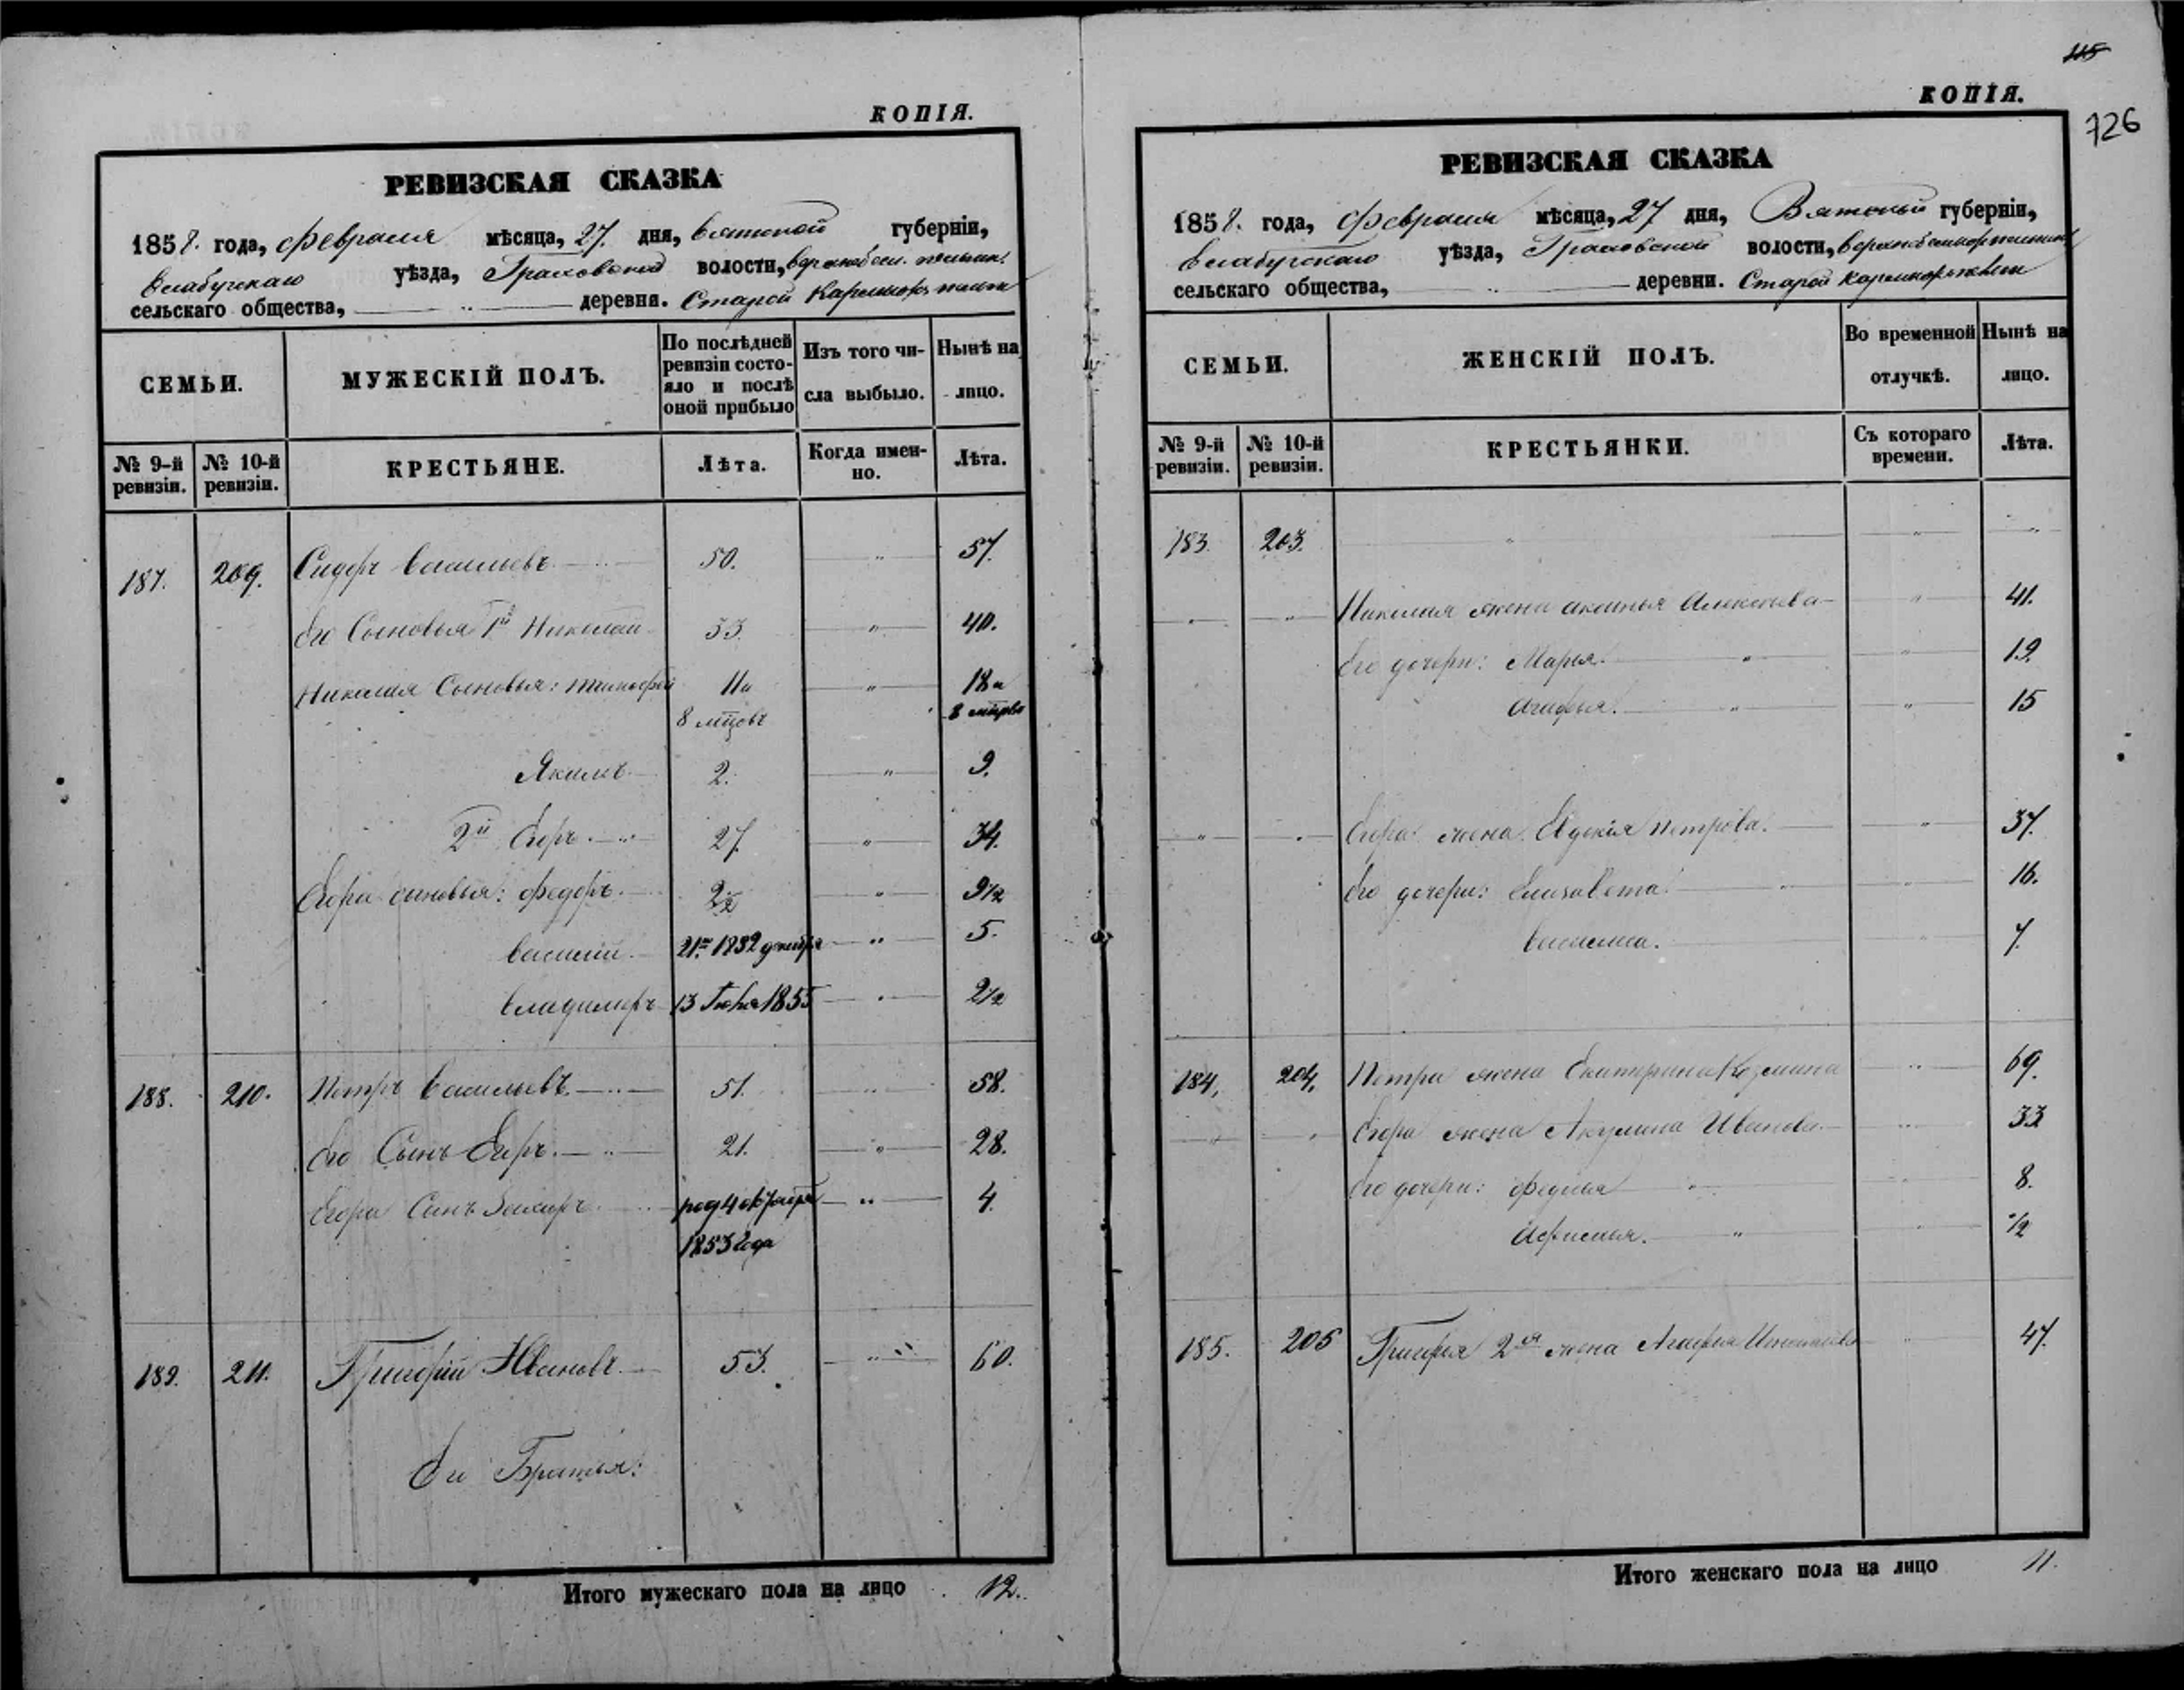 КОПІЯ.
РЕВИЗСКАЯ СКАЗКА
1858. года, Февраля мѣсяца, 27. дня, Вятской губерніи,
Елабужскаго уѣзда, Граховской волости,
сельскаго общества, деревня. Старой
СЕМЬИ.
МУЖЕСКІЙ ПОЛЪ.
По послѣдней ревизіи состо-
яло и послѣ
оной прибыло
Изъ того чи-
сла выбыло.
Нынѣ на
лицо.
№ 9-й ревизіи.
№ 10-й ревизіи.
КРЕСТЬЯНЕ.
Лѣта.
Когда имен-
но.
Лѣта.
187. 209. Сидоръ Васильевъ 50. 57.
Его Сыновья 1й Николай 33. 40.
Николая Сыновья: Тимофей 11 и 18 и
8 мцовъ 8 мцовъ
Якимъ 2. 9.
2й Егоръ 27. 34.
Егора сыновья: Федоръ 2½ 9½
Василій 5.
Владимеръ 13 1855 2½
188. 210. Петръ Васильевъ 51. 58.
Его Сынъ Егоръ 21. 28.
Егора Сынъ Захаръ род 4 октября 4.
1853 года
189. 211. Григорій Ивановъ 53. 60.
Его Братья:
Итого мужескаго пола на лицо 12.
115
КОПІЯ.
726
РЕВИЗСКАЯ СКАЗКА
1858. года, Февраля мѣсяца, 27 дня, Вятской губерніи,
Елабужскаго уѣзда, Граховской волости,
сельскаго общества, деревни. Старой
СЕМЬИ.
ЖЕНСКІЙ ПОЛЪ.
Во временной
отлучкѣ.
Нынѣ на
лицо.
№ 9-й ревизіи.
№ 10-й ревизіи.
КРЕСТЬЯНКИ.
Съ котораго
времени.
Лѣта.
183. 203.
Николая жена Аксинья Алексѣева 41.
Его дочери: Марья. 19.
Агафья. 15
Егора жена Евдокія Петрова. 37.
Его дочери: Елизавета 16.
Василиса. 7.
184. 204. Петра жена Екатерина Козмина 69.
Егора жена Акулина Иванова 33
Его дочери: Федосья 8.
Афимья. ½
185. 205 Григорья 2я жена Агафья 47.
Итого женскаго пола на лицо 11.